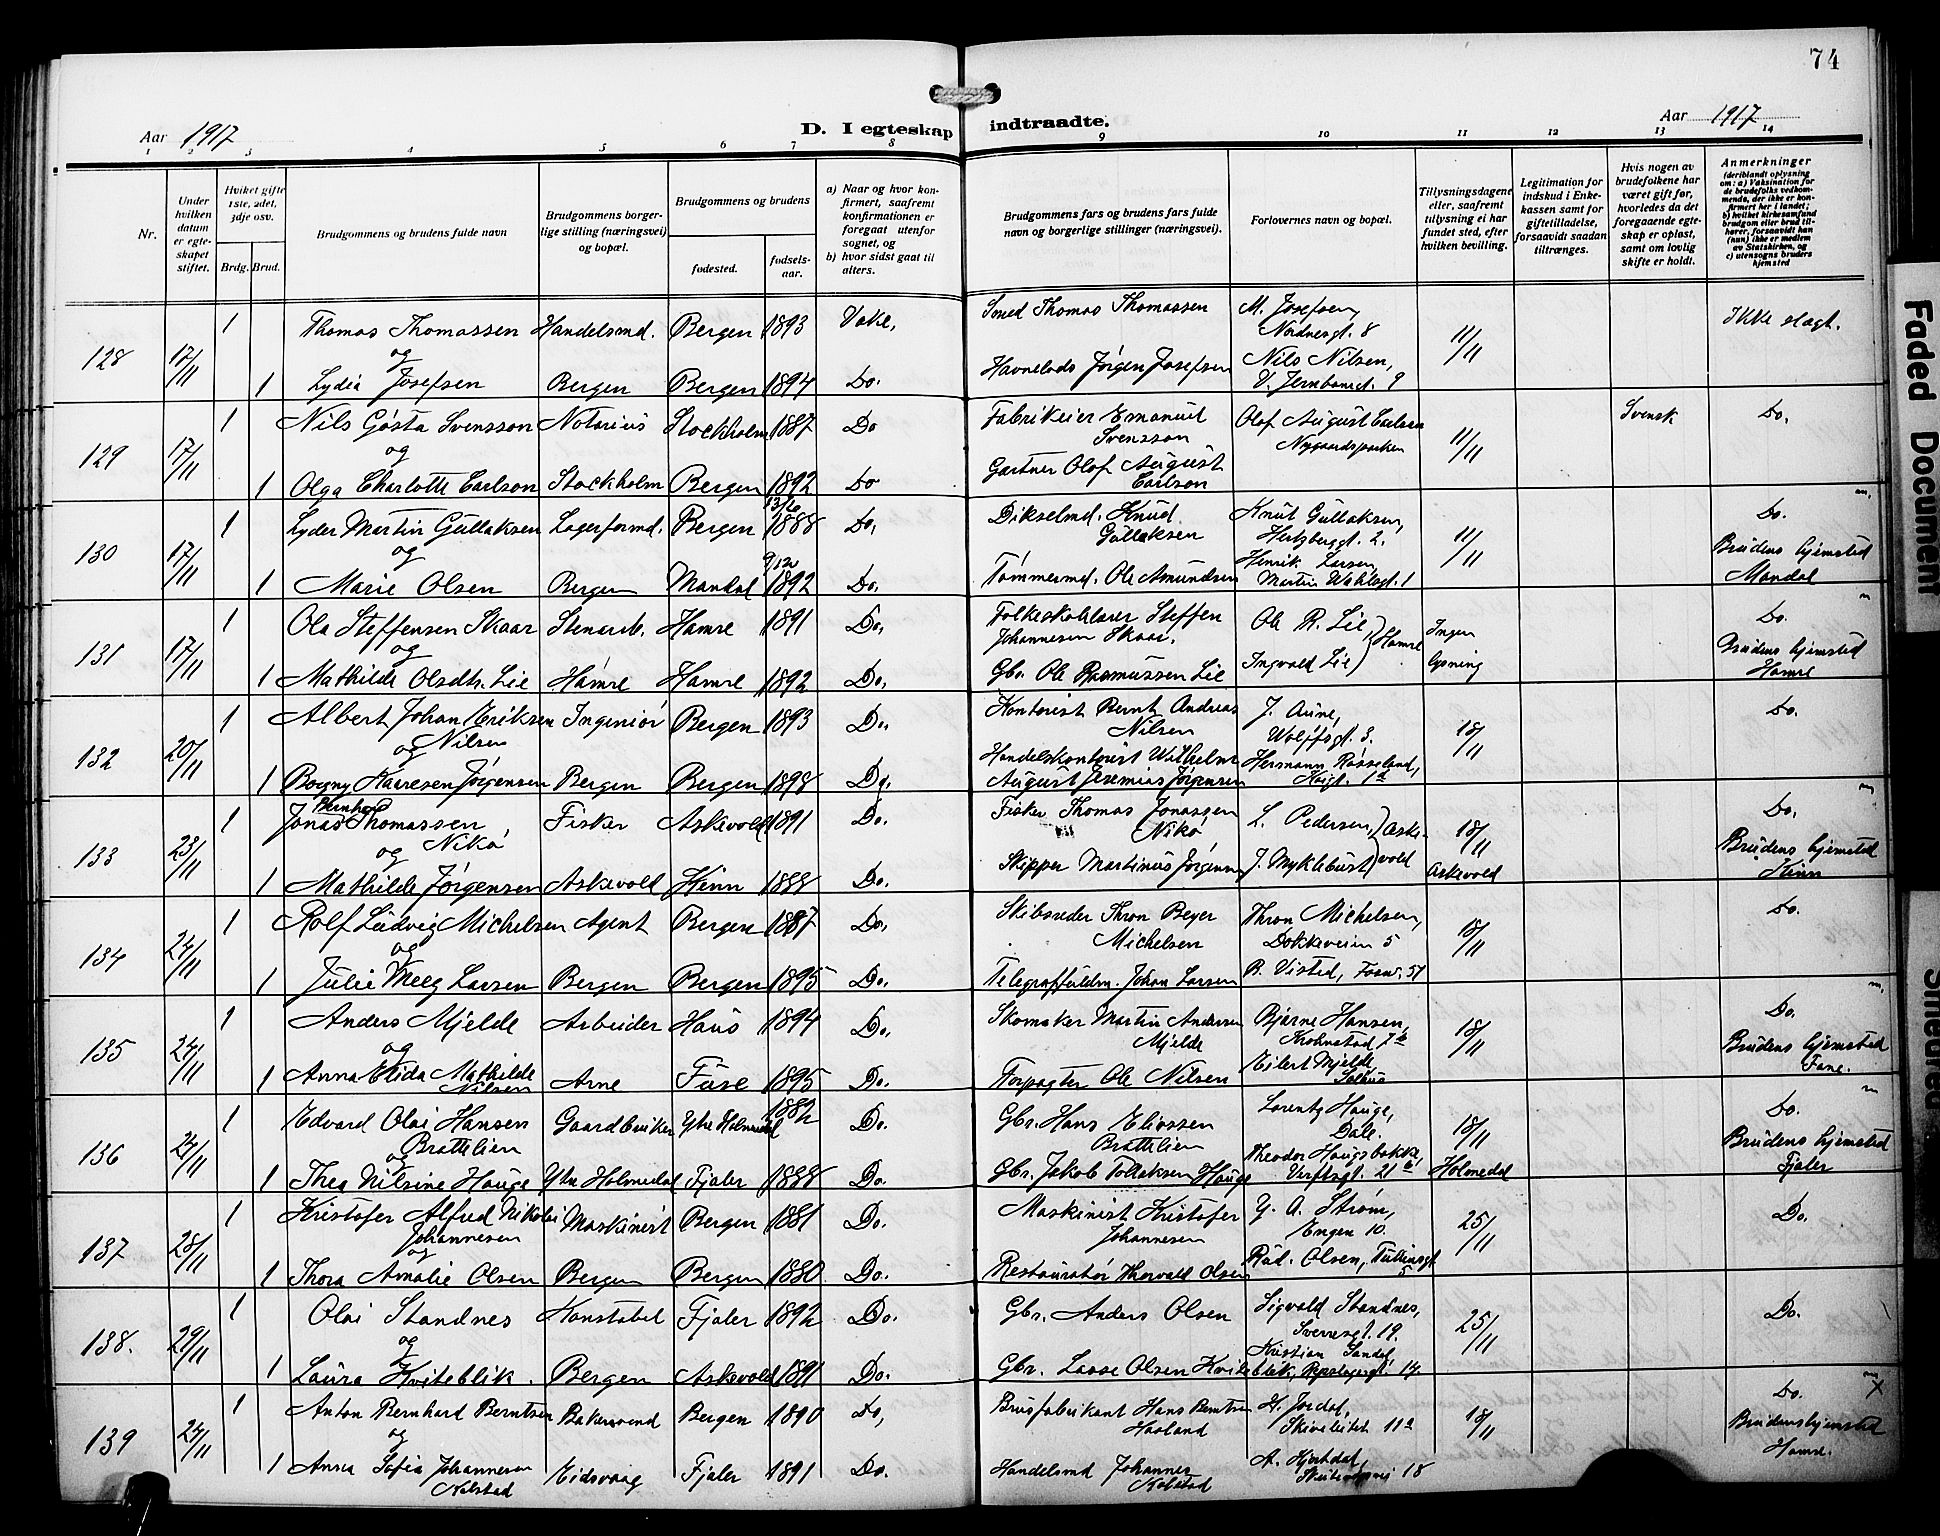 74
Aar 1917
D. I egteskap indtraadte.
Aar 1917
1 2 3 4 5 6 7 8 9 10 11 12 13 14
Nr.
Under hvilken datum er egteskapet stiftet.
Hvilket gifte 1ste, 2det, 3dje osv.
Brdg. Brud.
Brudgommens og brudens fulde navn
Brudgommens borgerlige stilling (næringsvei) og bopæl.
Brudgommens og brudens
fødested.
fødselsaar.
a) Naar og hvor konfirmert, saafremt konfirmationen er foregaat utenfor sognet, og
b) hvor sidst gaat til alters.
Brudgommens fars og brudens fars fulde navn og borgerlige stillinger (næringsvei).
Forlovernes navn og bopæl.
Tillysningsdagene eller, saafremt tillysning ei har fundet sted, efter hvilken bevilling.
Legitimation for indskud i Enkekassen samt for giftetilladelse, forsaavidt saadan tiltrænges.
Hvis nogen av brudefolkene har været gift før, hvorledes da det foregaaende egteskap er opløst, samt om lovlig skifte er holdt.
Anmerkninger
(deriblandt oplysning om: a) Vaksination for de brudefolks vedkommende, der ikke er konfirmert her i landet; b) hvilket kirkesamfund brudgom eller brud tilhører, forsaavidt han (hun) ikke er medlem av Statskirken, og c) utensogns bruders hjemsted
128 17/11 1 Thomas Thomassen Handelsmd. Bergen 1893 Smed Thomas Thomassen M. Josefsen, Nordnesgt. 8 11/11 Ikke slegt.
og
1 Lydia Josefsen Bergen Bergen 1894 Do. Havnelods Jørgen Josefsen Nils Nilsen, V. 9
129 17/11 1 Nils Gösta Svensson Notarius Stockholm 1887 Do Fabrikeier Emanuel Svensson Olof August Carlson Nygaardsparken 11/11 Svensk Do.
og
1 Olga Charlotte Carlson Stockholm Bergen 1892 Do Gartner Olof August Carlson
130 17/11 1 Lyder Martin Gullaksen Lagerformd. Bergen 13/6 1888 Do. Knud Gullaksen Knut Gullaksen, Hertzbergt. 2. 11/11 Do.
og
1 Marie Olsen Bergen Mandal 9/12 1892 Do. Tømmermd. Ole Amundsen Henrik Larsen, Martin Wahlsgt. 1 Brudens hjemsted Mandal
131 17/11 1 Ola Steffensen Skaar Stenarb. Hamre 1891 Do. Folkeskolelærer Steffen Johannesen Skaar. Ole R. Lie Hamre Ingen lysning Do.
og
1 Mathilde Olsdtr. Lie Hamre Hamre 1892 Do. Gbr. Ole Rasmussen Lie Ingvald Lie Brudens hjemsted Hamre
132 20/11 1 Albert Johan Eriksen Nilsen Ingeniør Bergen 1893 Do. Kontorist Bernt Andreas Nilsen J. Aune, Wolffsgt. 3. 18/11 Do.
og
1 Borgny Kaaresen Jørgensen Bergen Bergen 1898 Do. Handelskontorist Wilhelm August Jeremias Jørgensen Hermann Rosseland,
133 23/11 1 Jonas Bernhard Thomassen Nikø Fisker Askevold 1891 Do. Fisker Thomas Jonassen Nikø L. Pedersen, Askevold 18/11 Do.
og
1 Mathilde Jørgensen Askevold Kinn 1888 Do. Skipper Martinus Jørgensen J. Myklebust Askevold Brudens hjemsted Kinn
134 24/11 1 Rolf Ludvig Michelsen Agent Bergen 1887 Do. Skibsreder Thron Beyer Michelsen Thron Michelsen, Dokkeveien 5 18/11 Do.
og
1 Julie Meeg Larsen Bergen Bergen 1895 Do. Johan Larsen B. Visted,
135 24/11 1 Anders Mjelde Arbeider Haus 1894 Do. Skomaker Martin Andersen Mjelde Bjarne Hansen, Kronstad 7 18/11 Do.
og
1 Anna Elida Mathilde Nilsen Arne Fuse 1895 Do. Forpagter Ole Nilsen Eilert Mjelde Brudens hjemsted Fane.
136 24/11 1 Edvard Olai Hansen Brattelien Gaardbruker Ytre Holmedal 1882 Do. Gbr. Hans Eliassen Brattelien Lorentz Hauge, Dale. 18/11 Do.
og
1 Thea Nilsine Hauge Ytre Holmedal Fjaler 1888 Do. Gbr. Jakob Tollaksen Hauge Theodor Haugsbakke, Verftsgt. 21 Holmedal Brudens hjemsted Fjaler
137 28/11 1 Kristofer Alfred Nikolai Johannesen Maskinist Bergen 1881 Do. Maskinist Kristofer Johannesen Y. A. Strøm, Engen 10. 25/11 Do.
og
1 Thora Amalie Olsen Bergen Bergen 1880 Do. Restauratør Thorvald Olsen Rud. Olsen, Tullinsgt 5
138. 29/11 1 Olai Standnes Konstabel Fjaler 1892 Do. Gbr. Anders Olsen Sigvald Standnes, Sverresgt. 19. 25/11 Do.
og
1 Laura Kviteblik. Bergen Askevold 1891 Do. Gbr. Lasse Olsen Kviteblik, Kristian Sandal, Repslagergt. 14.
139 24/11 1 Anton Bernhard Berntsen Bakersvend Bergen 1890 Do. Brusfabrikant Hans Berntsen Haaland H. Jordal, Skivebakken 11 a 18/11 Do. X
og
1 Anna Sofia Johannesen Eidsvaag Fjaler 1891 Do. Handelsmd Johannes A. Hjortdal, 18 Brudens hjemsted Hamre.
Faded Document
Smeared